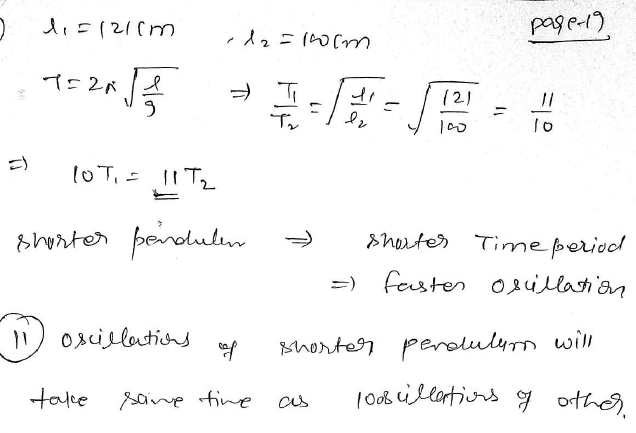 ) l₁ = 121cm , l₂ = 100cm page-19
T = 2π √(l/g) ⇒ T₁/T₂ = √(l₁/l₂) = √(121/100) = 11/10
⇒ 10T₁ = 11T₂
shorter pendulem ⇒ shorter Time period
⇒ faster oscillation
11 oscillations of shorter pendulum will
take same time as 10 oscillations of other.